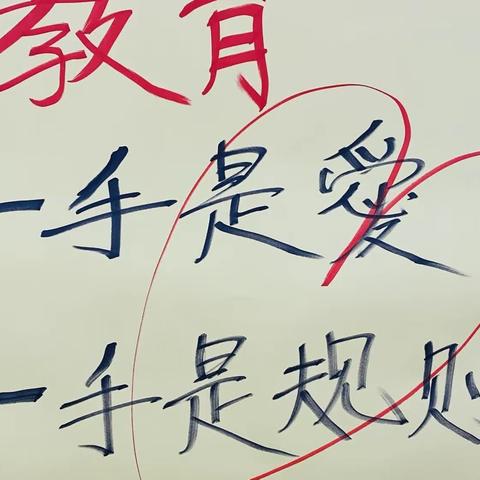 教育
一手是愛
一手是规则